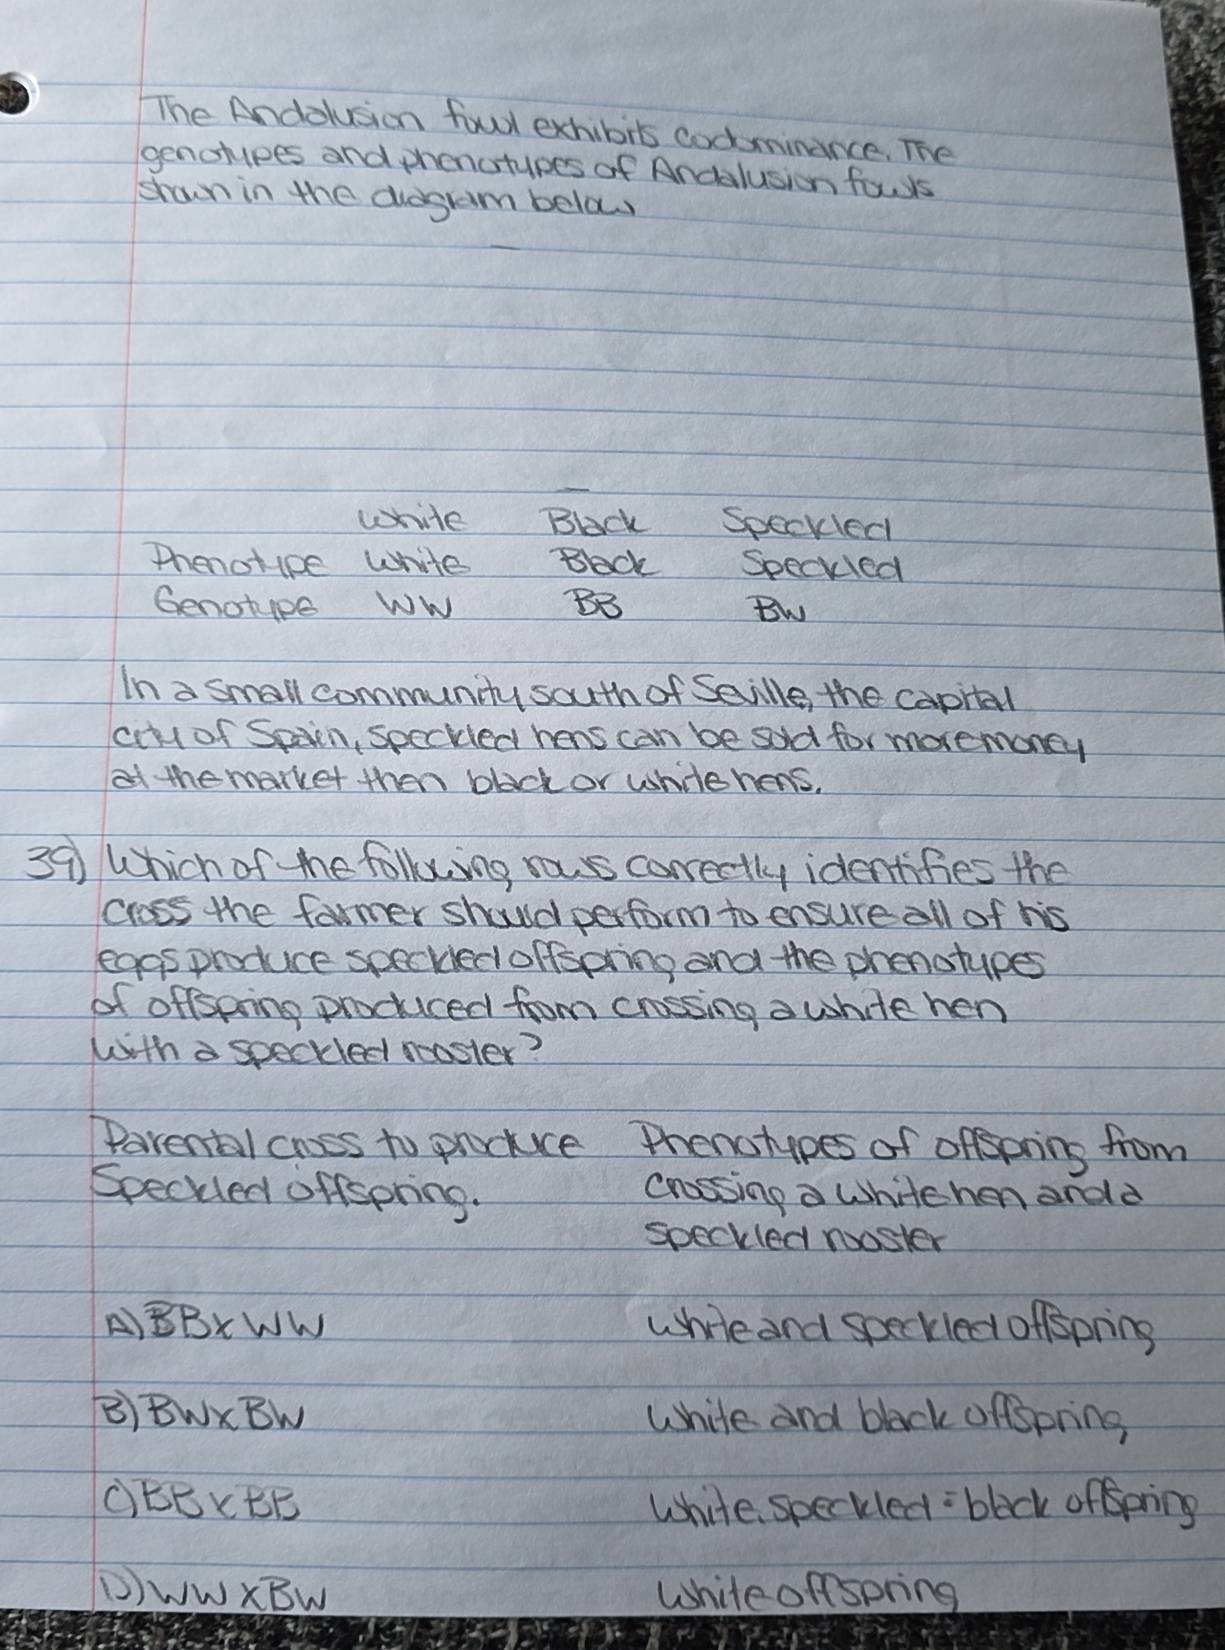 The Andalusion fowl exhibits codominance. The
genotypes and phenotypes of Andalusion fowls
shown in the diagram below
White Black Speckled
Phenotype White Black Speckled
Genotype WW BB BW
In a small community south of Seville, the capital
city of Spain, speckled hens can be sold for more money
at the market then black or white hens.
39) Which of the following rows correctly identifies the
cross the farmer should perform to ensure all of his
eggs produce speckled offspring and the phenotypes
of offspring produced from crossing a white hen
with a speckled rooster?
Parental cross to produce Phenotypes of offspring from
Speckled offspring. crossing a white hen and a
speckled rooster
A) BB x WW White and speckled offspring
B) BW x BW White and black offspring
C) BB x BB White, speckled = black offspring
D) WW x BW White offspring